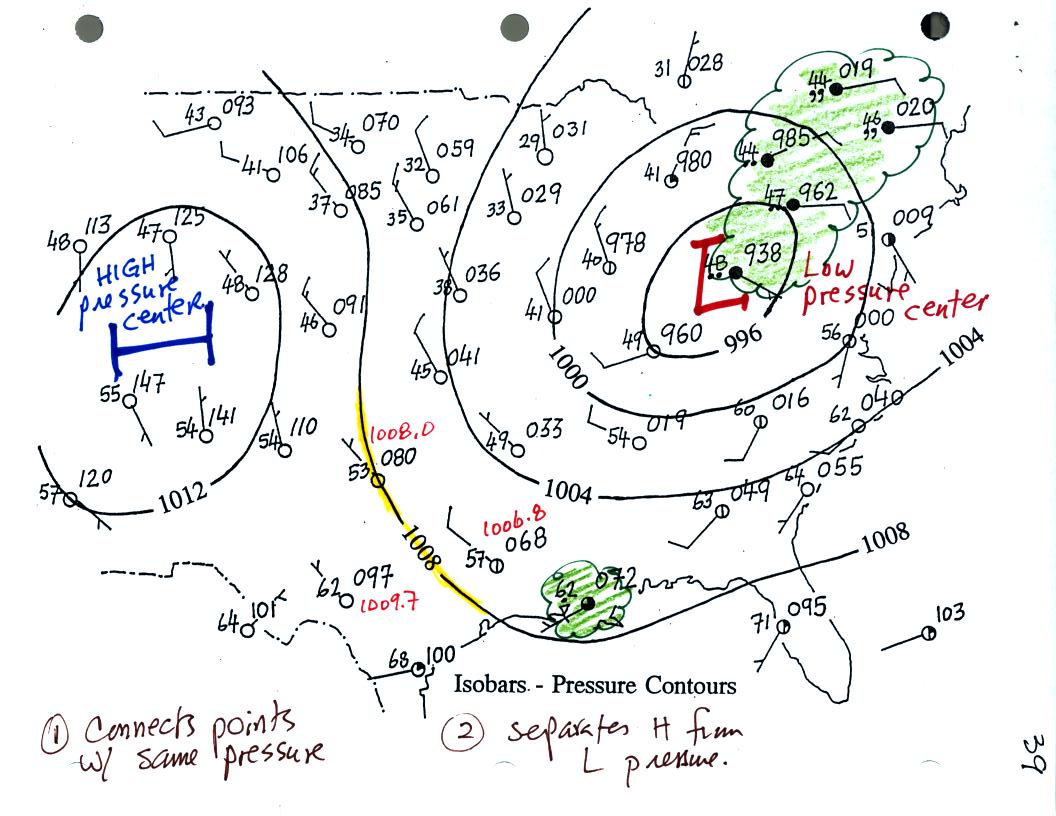 31 028
44 019
,,
46 020
,,
43 093
34 070
29 031
44 985
41 980
32 059
41 106
37 085
35 061
33 029
47 962
48 113
47 125
5 009
40 978
48 938
L
Low
pressure
center
HIGH
pressure
center
H
48 128
46 091
38 036
41 000
49 960
996
56 000
1004
55 147
54 141
54 110
45 041
1000
60 016
62 040
49 033
54 019
1008.0
53 080
57 120
1012
1004
63 049
64 055
1006.8
57 068
1008
1008
62 097
1009.7
62 072
64 101
71 095
103
68 100
Isobars - Pressure Contours
① Connects points
w/ same pressure
② separates H from
L pressure.
39